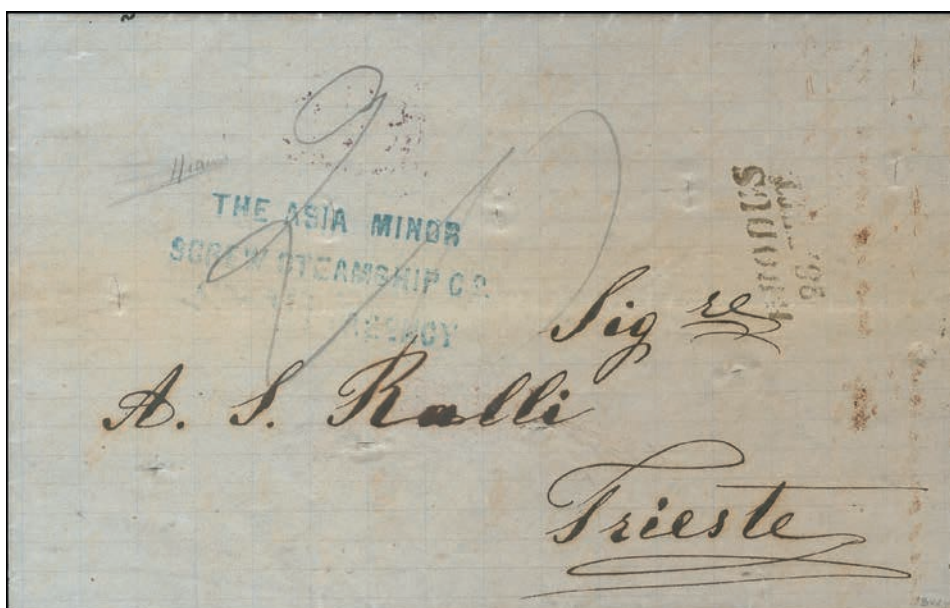 THE ASIA MINOR
SCREW STEAMSHIP CO.
AGENCY
RHODUS
Sig re
A. S. Ralli
Trieste